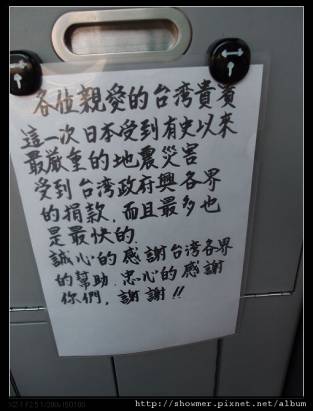 各位親愛的台湾貴賓
這一次日本受到有史以来
最厳重的地震災害
受到台湾政府興各界
的捐款.而且最多也
是最快的.
誠心的感謝台湾各界
的幫助.忠心的感謝
你們,謝謝!!
http://showmer.pixnet.net/album